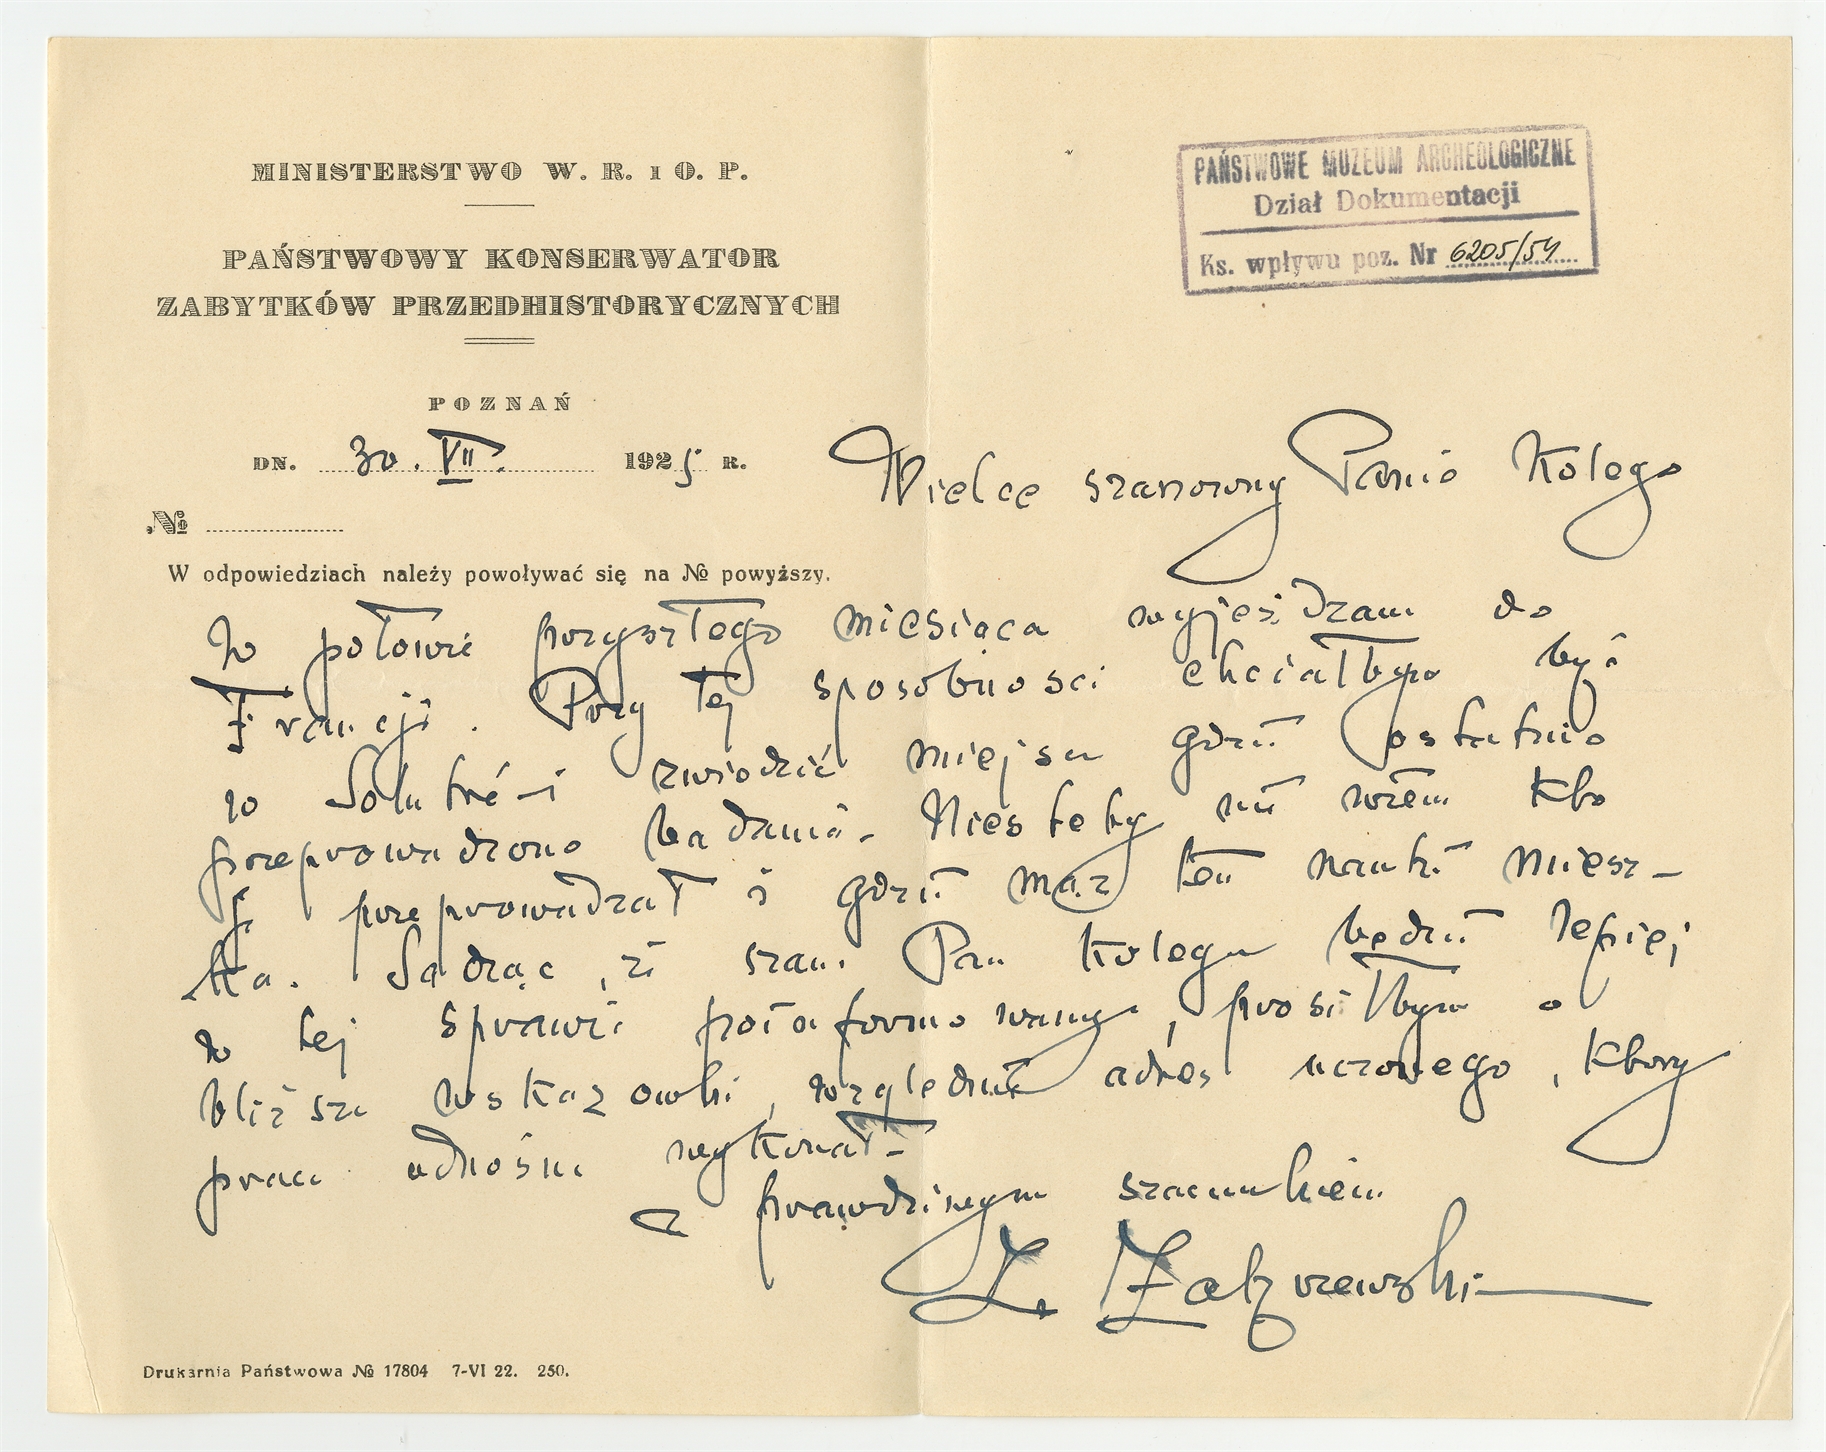 MINISTERSTWO W. R. i O. P.
PAŃSTWOWY KONSERWATOR
ZABYTKÓW PRZEDHISTORYCZNYCH
POZNAŃ
DN. 30. VII. 1925 R.
№
W odpowiedziach należy powoływać się na № powyższy.
PAŃSTWOWE MUZEUM ARCHEOLOGICZNE
Dział Dokumentacji
Ks. wpływu poz. Nr 6205/54
Wielce szanowny Panie Kolego
W połowie przyszłego miesiąca wyjeżdżam do
Francji. Przy tej sposobności chciałbym być
w Solutré i zwiedzić miejsca gdzie ostatnio
przeprowadzono badania. Niestety nie wiem kto
je przeprowadzał i gdzie mąż ten nauki miesz-
ka. Sądząc, że szan. Pan Kolega będzie lepiej
w tej sprawie poinformowany, prosiłbym o
bliższe wskazówki, względnie adres uczonego, który
prace odnośne wykonał.
Z prawdziwym szacunkiem
Z. Zakrzewski
Drukarnia Państwowa № 17804 7-VI 22. 250.